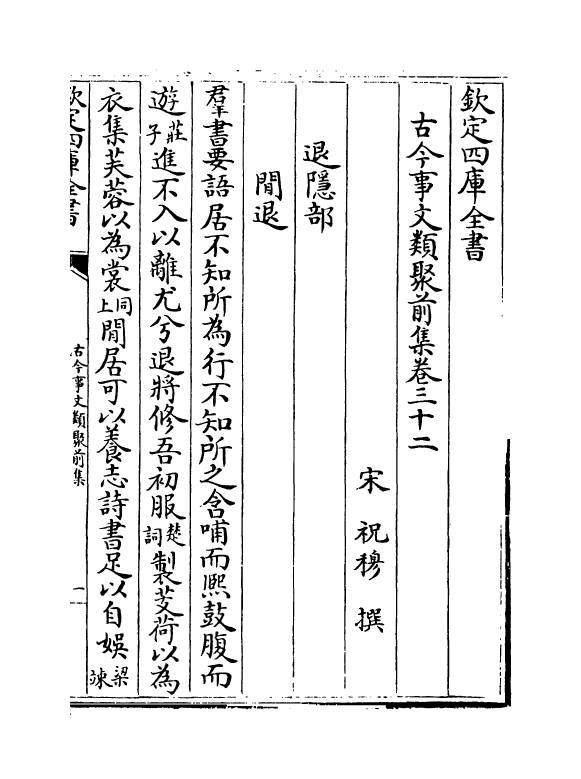 欽定四庫全書
古今事文類聚前集卷三十二
宋 祝穆 撰
退隱部
閒退
羣書要語居不知所為行不知所之含哺而熈鼓腹而
遊莊子進不入以離尤兮退將修吾初服楚詞製芰荷以為
衣集芙蓉以為裳同上閒居可以養志詩書足以自娛梁竦
欽定四庫全書
古今事文類聚前集
一